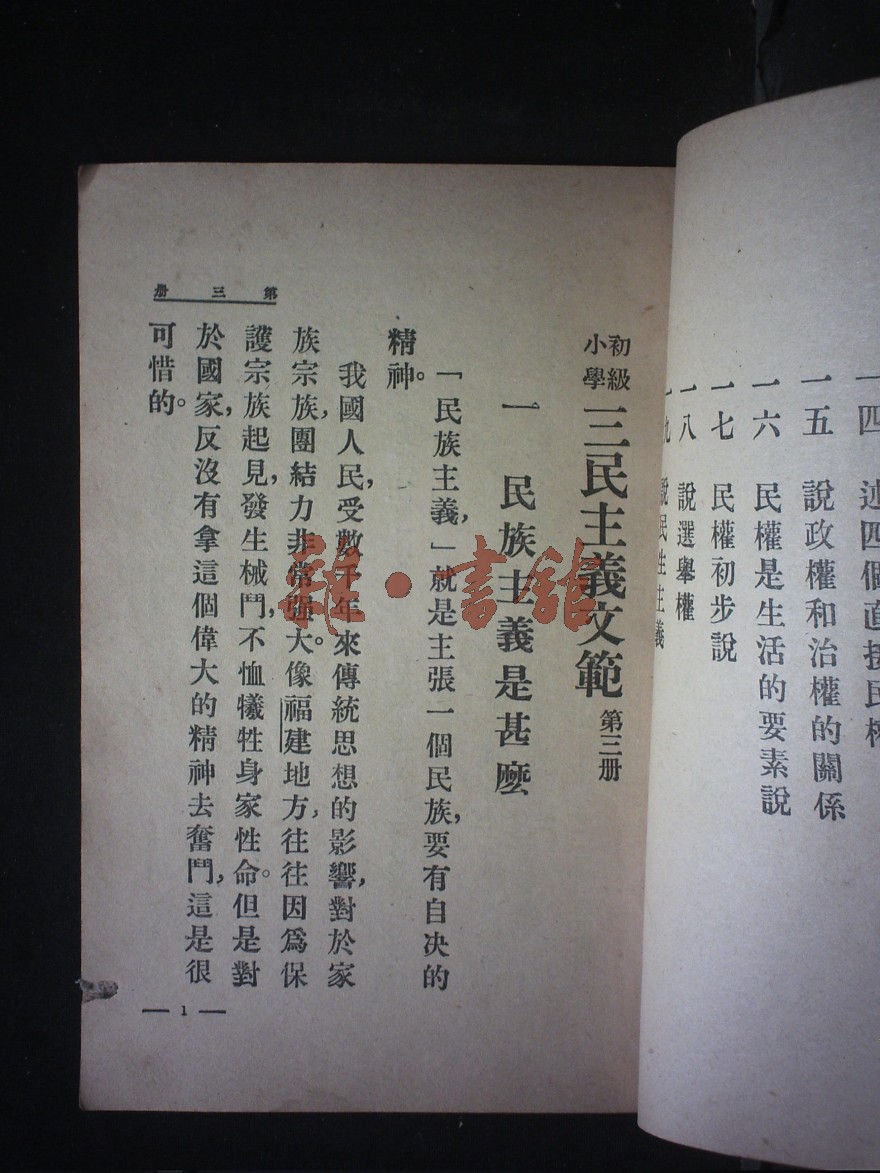 一四 述四個直接民權
一五 說政權和治權的關係
一六 民權是生活的要素說
一七 民權初步說
一八 說選舉權
一九 說民生主義
初級小學 三民主義文範 第三册
一 民族主義是甚麼
「民族主義，」就是主張一個民族，要有自決的
精神。
我國人民，受數千年來傳統思想的影響，對於家
族宗族，團結力非常强大。像福建地方，往往因爲保
護宗族起見，發生械鬥，不恤犧牲身家性命。但是對
於國家，反沒有拿這個偉大的精神去奮鬥，這是很
可惜的。
第三册
— 1 —
雜·書館